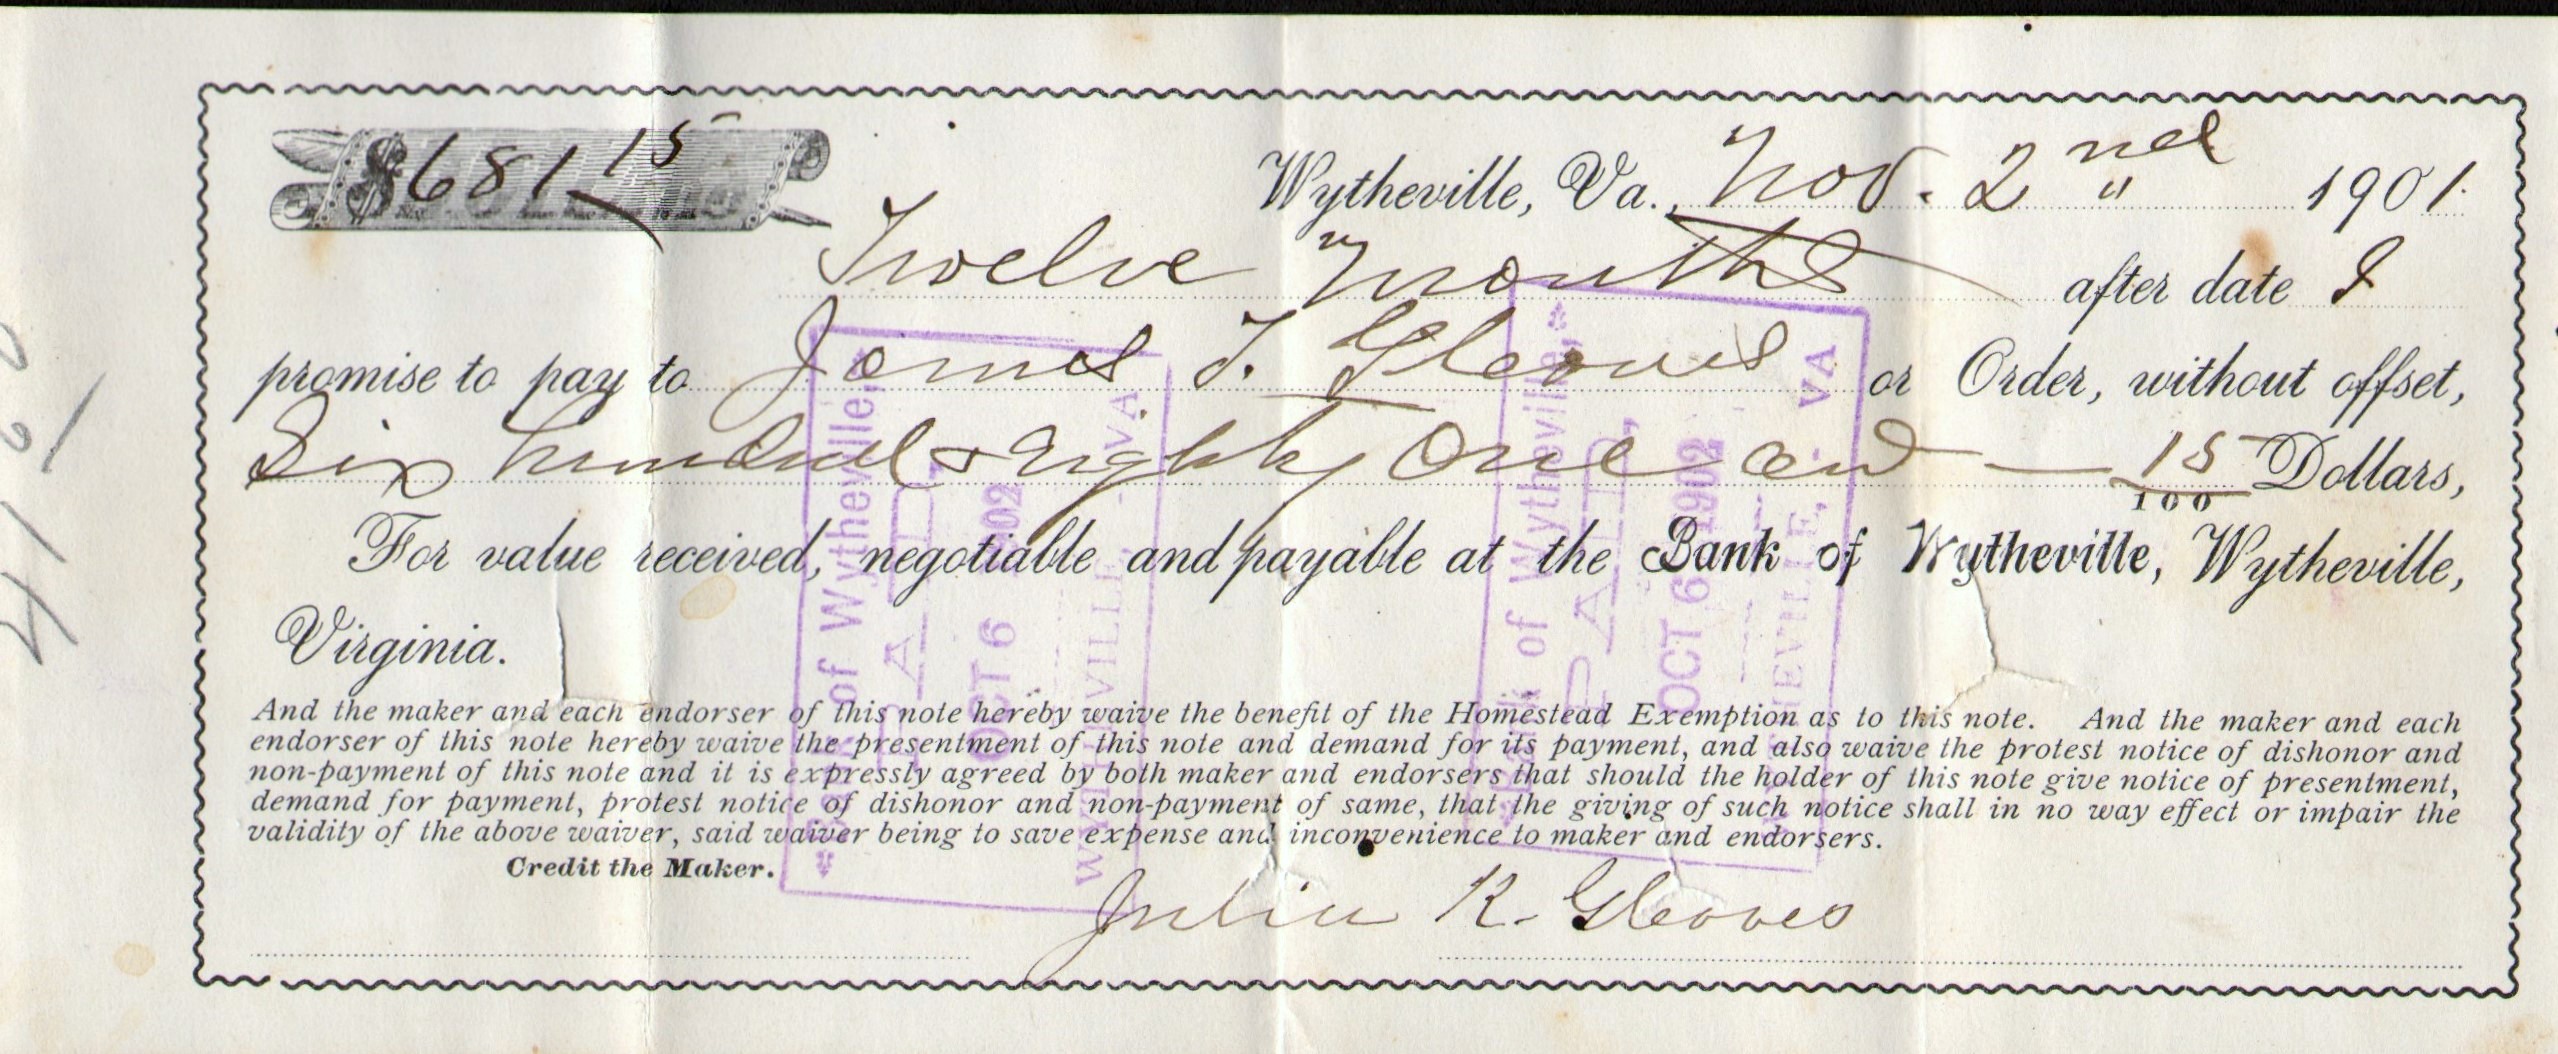 $681 15
Wytheville, Va., Nov. 2nd " 1901.
Twelve Months after date I
promise to pay to James T. Gleaves or Order, without offset,
Six hundred & Eighty One and — 15/100 Dollars,
For value received, negotiable and payable at the Bank of Wytheville, Wytheville,
Virginia.
And the maker and each endorser of this note hereby waive the benefit of the Homestead Exemption as to this note. And the maker and each
endorser of this note hereby waive the presentment of this note and demand for its payment, and also waive the protest notice of dishonor and
non-payment of this note and it is expressly agreed by both maker and endorsers that should the holder of this note give notice of presentment,
demand for payment, protest notice of dishonor and non-payment of same, that the giving of such notice shall in no way effect or impair the
validity of the above waiver, said waiver being to save expense and inconvenience to maker and endorsers.
Credit the Maker.
Julia K. Gleaves
Bank of Wytheville,
PAID,
OCT 6 1902
WYTHEVILLE, VA.
Bank of Wytheville,
PAID,
OCT 6 1902
WYTHEVILLE, VA